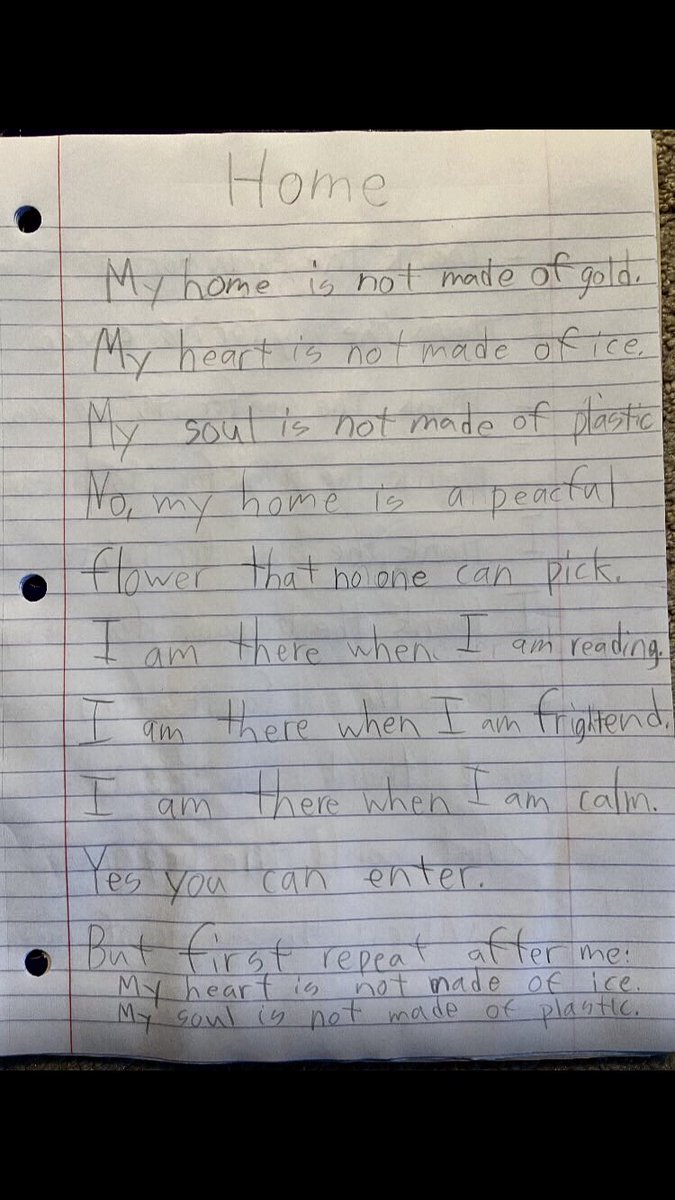 Home
My home is not made of gold.
My heart is not made of ice.
My soul is not made of plastic
No, my home is a peacful
flower that no one can pick.
I am there when I am reading.
I am there when I am frightend.
I am there when I am calm.
Yes you can enter.
But first repeat after me:
My heart is not made of ice.
My soul is not made of plastic.